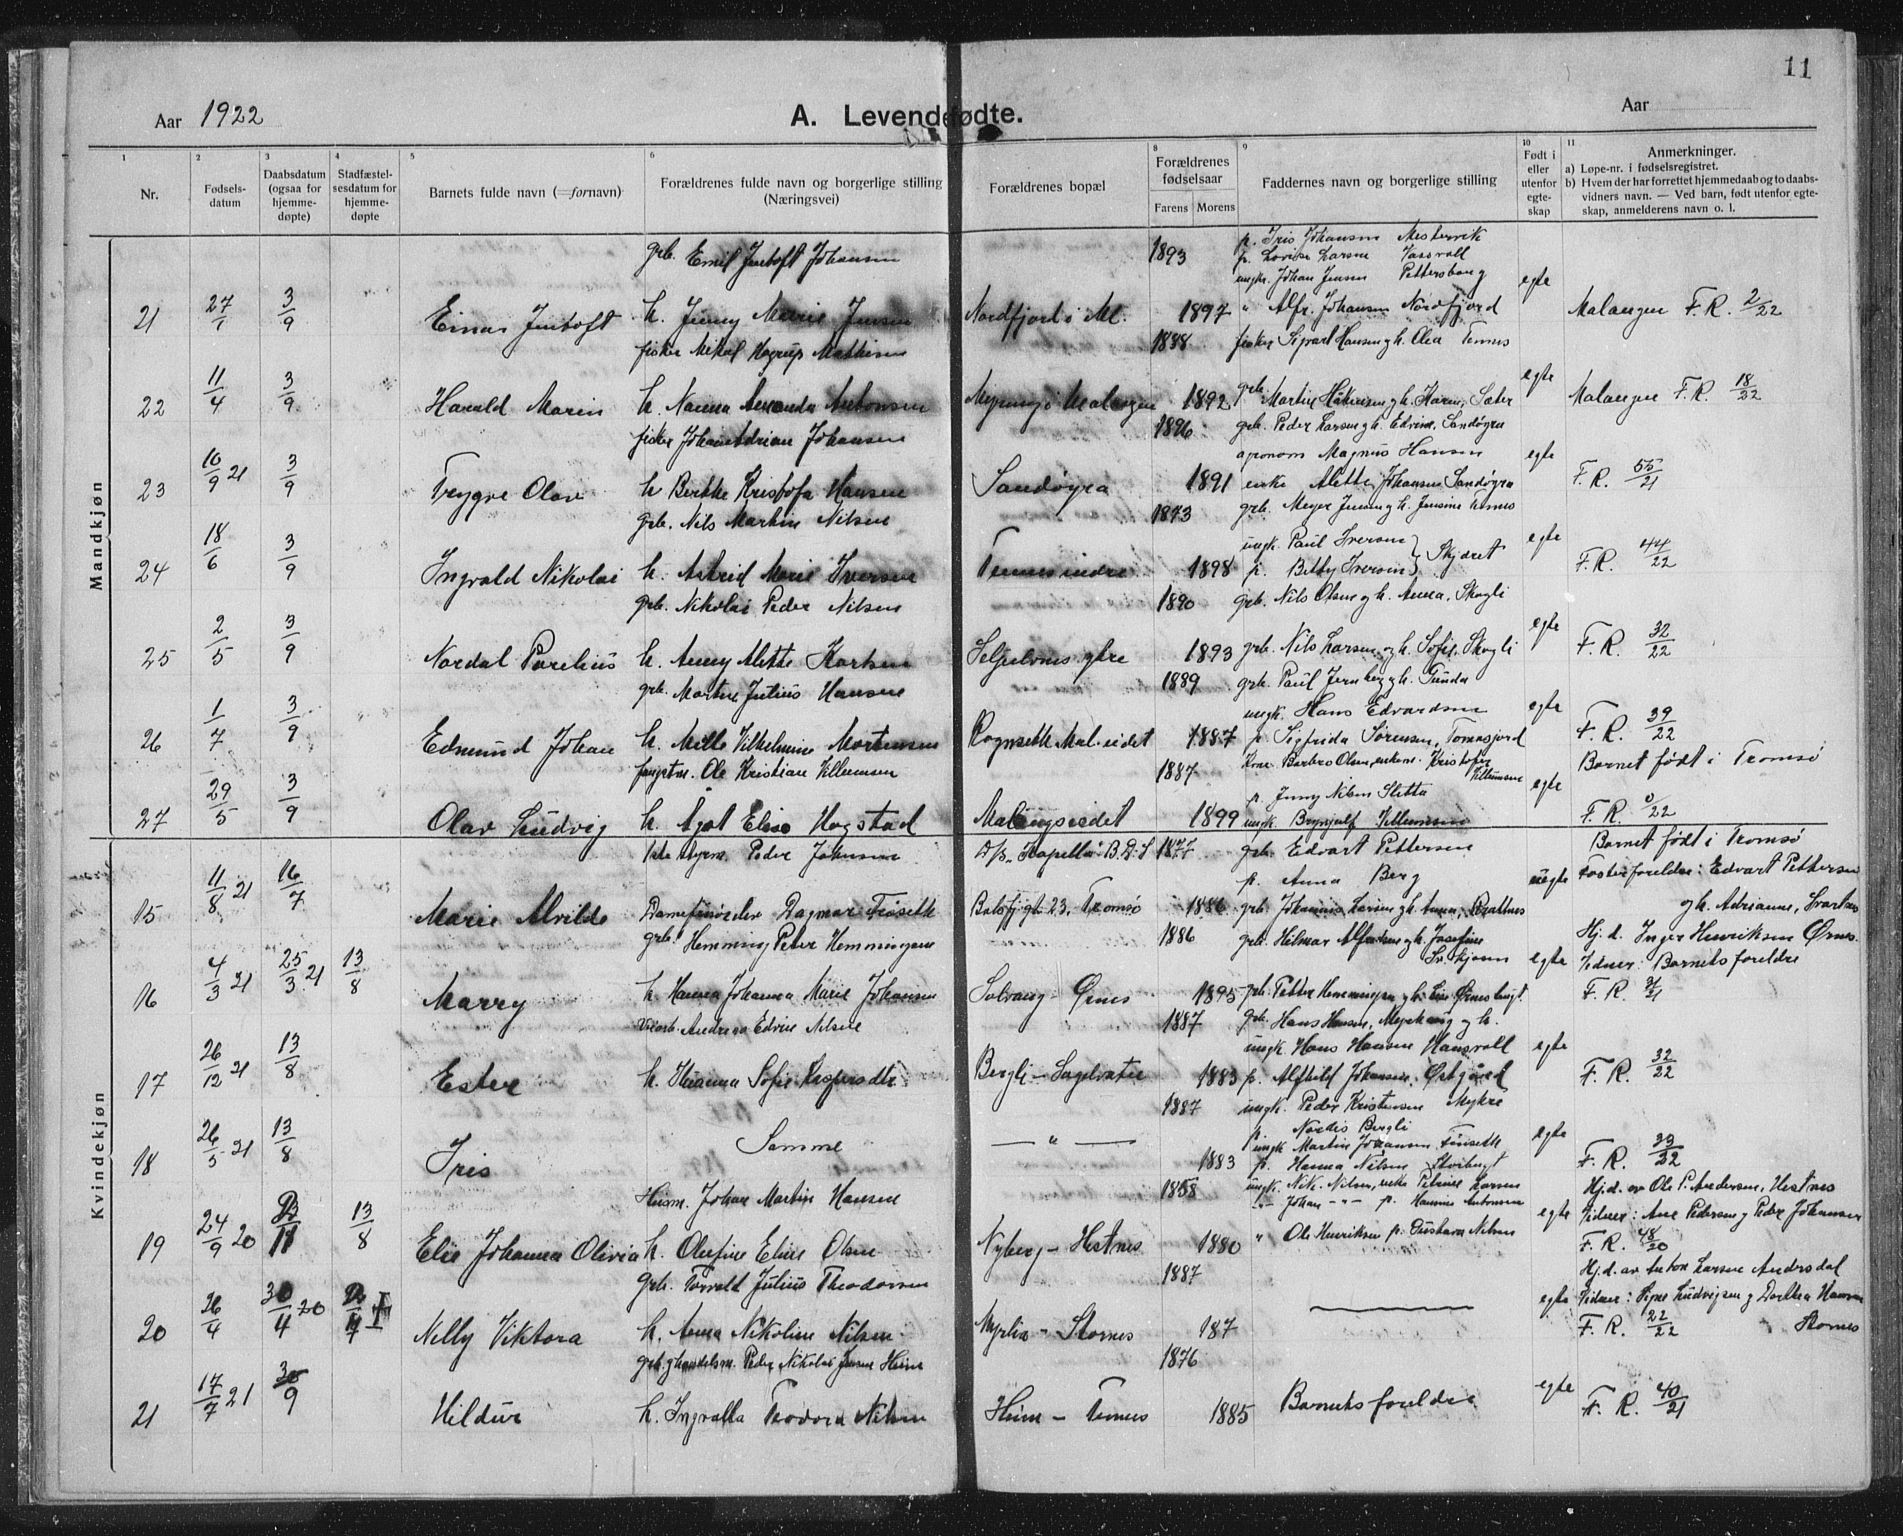 11
Aar 1922
A. Levendefødte.
Aar
1 2 3 4 5 6 8 9 10 11
Nr.
Fødsels-datum
Daabsdatum (ogsaa for hjemme-døpte)
Stadfæstel-sesdatum for hjemme-døpte
Barnets fulde navn (=fornavn)
Forældrenes fulde navn og borgerlige stilling (Næringsvei)
Forældrenes bopæl
Forældrenes fødselsaar
Farens Morens
Faddernes navn og borgerlige stilling
Født i eller utenfor egte-skap
Anmerkninger.
a) Løpe-nr. i fødselsregistret.
b) Hvem der har forrettet hjemmedaab og to daabs-vidners navn. — Ved barn, født utenfor egte-skap, anmelderens navn o. l.
Mandkjøn
grb. Emil Jentoft Johansen 1893 p. Iris Johansen Mestervik
p. Lovise Larsen
ungk. Johan Jensen Pettersborg egte
21 27/ 3/9 Einar Jentoft h. Jenny Marie Jensen Nordfjord i Ml. 1897 " Alfr. Johansen Nordfjord Malangen F. R. 2/22
fisker Mikal Mathisen 1888 fisker Sigvart Hansen g h. Olea Tennes
22 11/4 3/9 Harald Marin h. Nanna Amanda Antonsen 1892 grb. Martin Håkensen g h. Karen, Sæter egte Malangen F. R. 18/22
fisker Johan Adrian Johansen 1896 grb. Peder Larsen g h. Edvine, Sandøyra
agronom Magnus Hansen egte
23 10/9 21 3/9 Trygve Olav h. Berthe Kristofa Hansen Sandøyra 1891 enke Alette Johansen Sandøyra F. R. 55/21
grb. Nils Martin Nilsen 1873 grb. Meyer Jensen g h. Jensine Tennes
ungk. Paul Iversen egte
24 18/6 3/9 Ingvald Nikolai h. Astrid Marie Iversen Tennes indre 1898 p. Betty Iversen } Skjæret F. R. 44/22
grb. Nikolai Peder Nilsen 1890 grb. Nils Olsen g h. Anna, Skogli
25 2/5 3/9 Nordal Parelius h. Anny Alette Karlsen Seljelvnes ytre 1893 grb. Nils Larsen og h. Sofie, Skogli egte F. R. 32/22
grb. Morten Julius Hansen 1889 grb. Paul Jernberg g h. Gunda
ungk. Hans Edvardsen egte
26 1/7 3/9 Edmund Johan h. Mille Vilhelmine Mortensen 1887 p. Sigfrida Sørensen, Tomasjord F. R. 39/22
fangstm. Ole Kristian Villumsen 1887 Kone Barbro Olsen, enkem. Kristofer Villumsen Barnet født i Tromsø
p. Jenny Nilsen Sletta egte
27 29/5 3/9 Olav Ludvig h. Agot Elise Hogstad Malangseidet 1899 ungk. Brynjulf Villumsen F. R. 0/22
Kvindekjøn
1ste styrm. Peder Johnsen D/s. "Kapella" B.D.S 1877 grb. Edvart Pettersen Barnet født i Tromsø
p. Anna Berg uegte Fosterforeldre: Edvart Pettersen
15 11/8 21 16/7 Marie Alvilde Damefrisørder Dagmar Frøseth Balsfj.gt. 23, Tromsø 1886 g h. Adrianne, Svartnes
grb. Hemming Peter Hemmingsen 1886 grb. Hilmar Alfredsen g h. Josefine Hj.d. Inger Henriksen Ørnes.
egte Vidner: Barnets foreldre
16 4/3 21 25/3 21 13/8 Marry h. Hanna Johanna Marie Johansen Solvang - Ørnes 1895 grb. Petter Hemmingsen g h. Ørnes F. R.
Andreas Edvin Nilsen 1887 grb. Hans Hansen, g h.
ungk. Hans Hansen egte
17 26/12 21 13/8 Ester h. Sofie Kaspersdtr Bergli - Sagelvvatn 1883 p. Alfhild Johansen, Østgård F. R. 32/22
1887 ungk. Peder Kristensen Mykre
p. Nordis Bergli egte
18 26/5 21 13/8 Iris Samme — " — 1883 ungk. Martin Johansen F. R. 33/22
p. Hanna Nilsen
Husm. Johan Martin Hansen 1858 ungk. Nik. Nilsen, enke Petrine Larsen Hj.d. av Ole P. Andersen, Hestnes
" Johan " p. Hansine Antonsen egte Vidner: Ane Pedersen g Peder Johansen
19 24/9 20 11 13/8 Elie Johanna Olivia h. Olufine Eline Olsen Nyberg - Hestnes 1880 " Ole Henriksen p. Gustava Nilsen F. R. 48/20
grb. Torvald Julius Theodorsen 1887 Hj.d. av Anton Larsen Andersdal
egte Vidner: Signe Ludvigsen g Dorthea Hansen
20 26/4 30/4 20 Nelly Viktora h. Anna Nikoline Nilsen Myrlia - Stornes 187 F. R. 22/22 Stornes
grb. g handelsm. Peder Nikolai Jensen Heim 1876
21 17/7 21 30/9 Hildur h. Ingvalla Teodora Nilsen Heim - Tennes 1885 Barnets foreldre egte F. R. 40/21